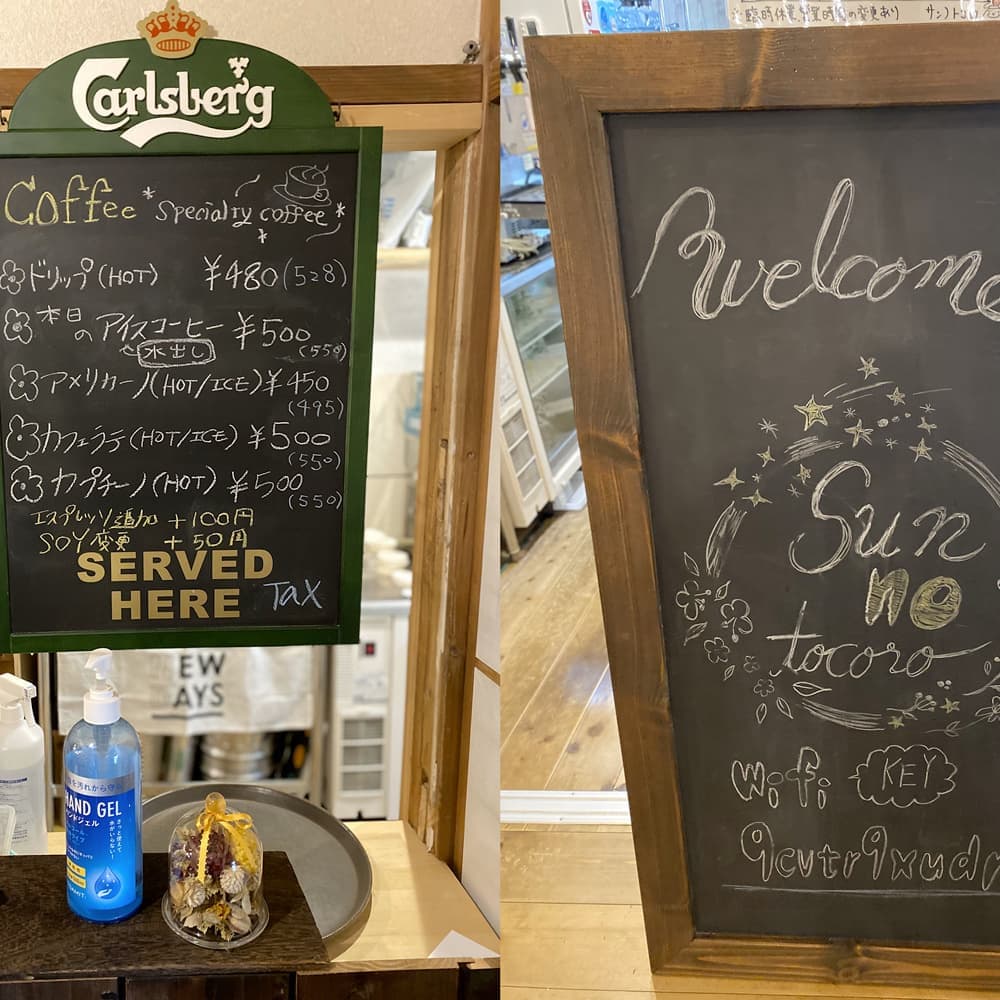 Carlsberg
Coffee
*Specialty coffee*
*
ドリップ(HOT) ¥480(528)
本日のアイスコーヒー ¥500
水出し (550)
アメリカーノ(HOT/ICE) ¥450
(495)
カフェラテ(HOT/ICE) ¥500
(550)
カプチーノ(HOT) ¥500
(550)
エスプレッソ追加 +100円
SOY変更 +50円
SERVED
HERE TAX
EW
AYS
を汚れから守
HAND GEL
ハンドジェル
さっと使えて
水がいらない!
※臨時休業、営業時間の変更あり
Welcome
Sun
no
tocoro
wifi KEY
9cvtr9xud